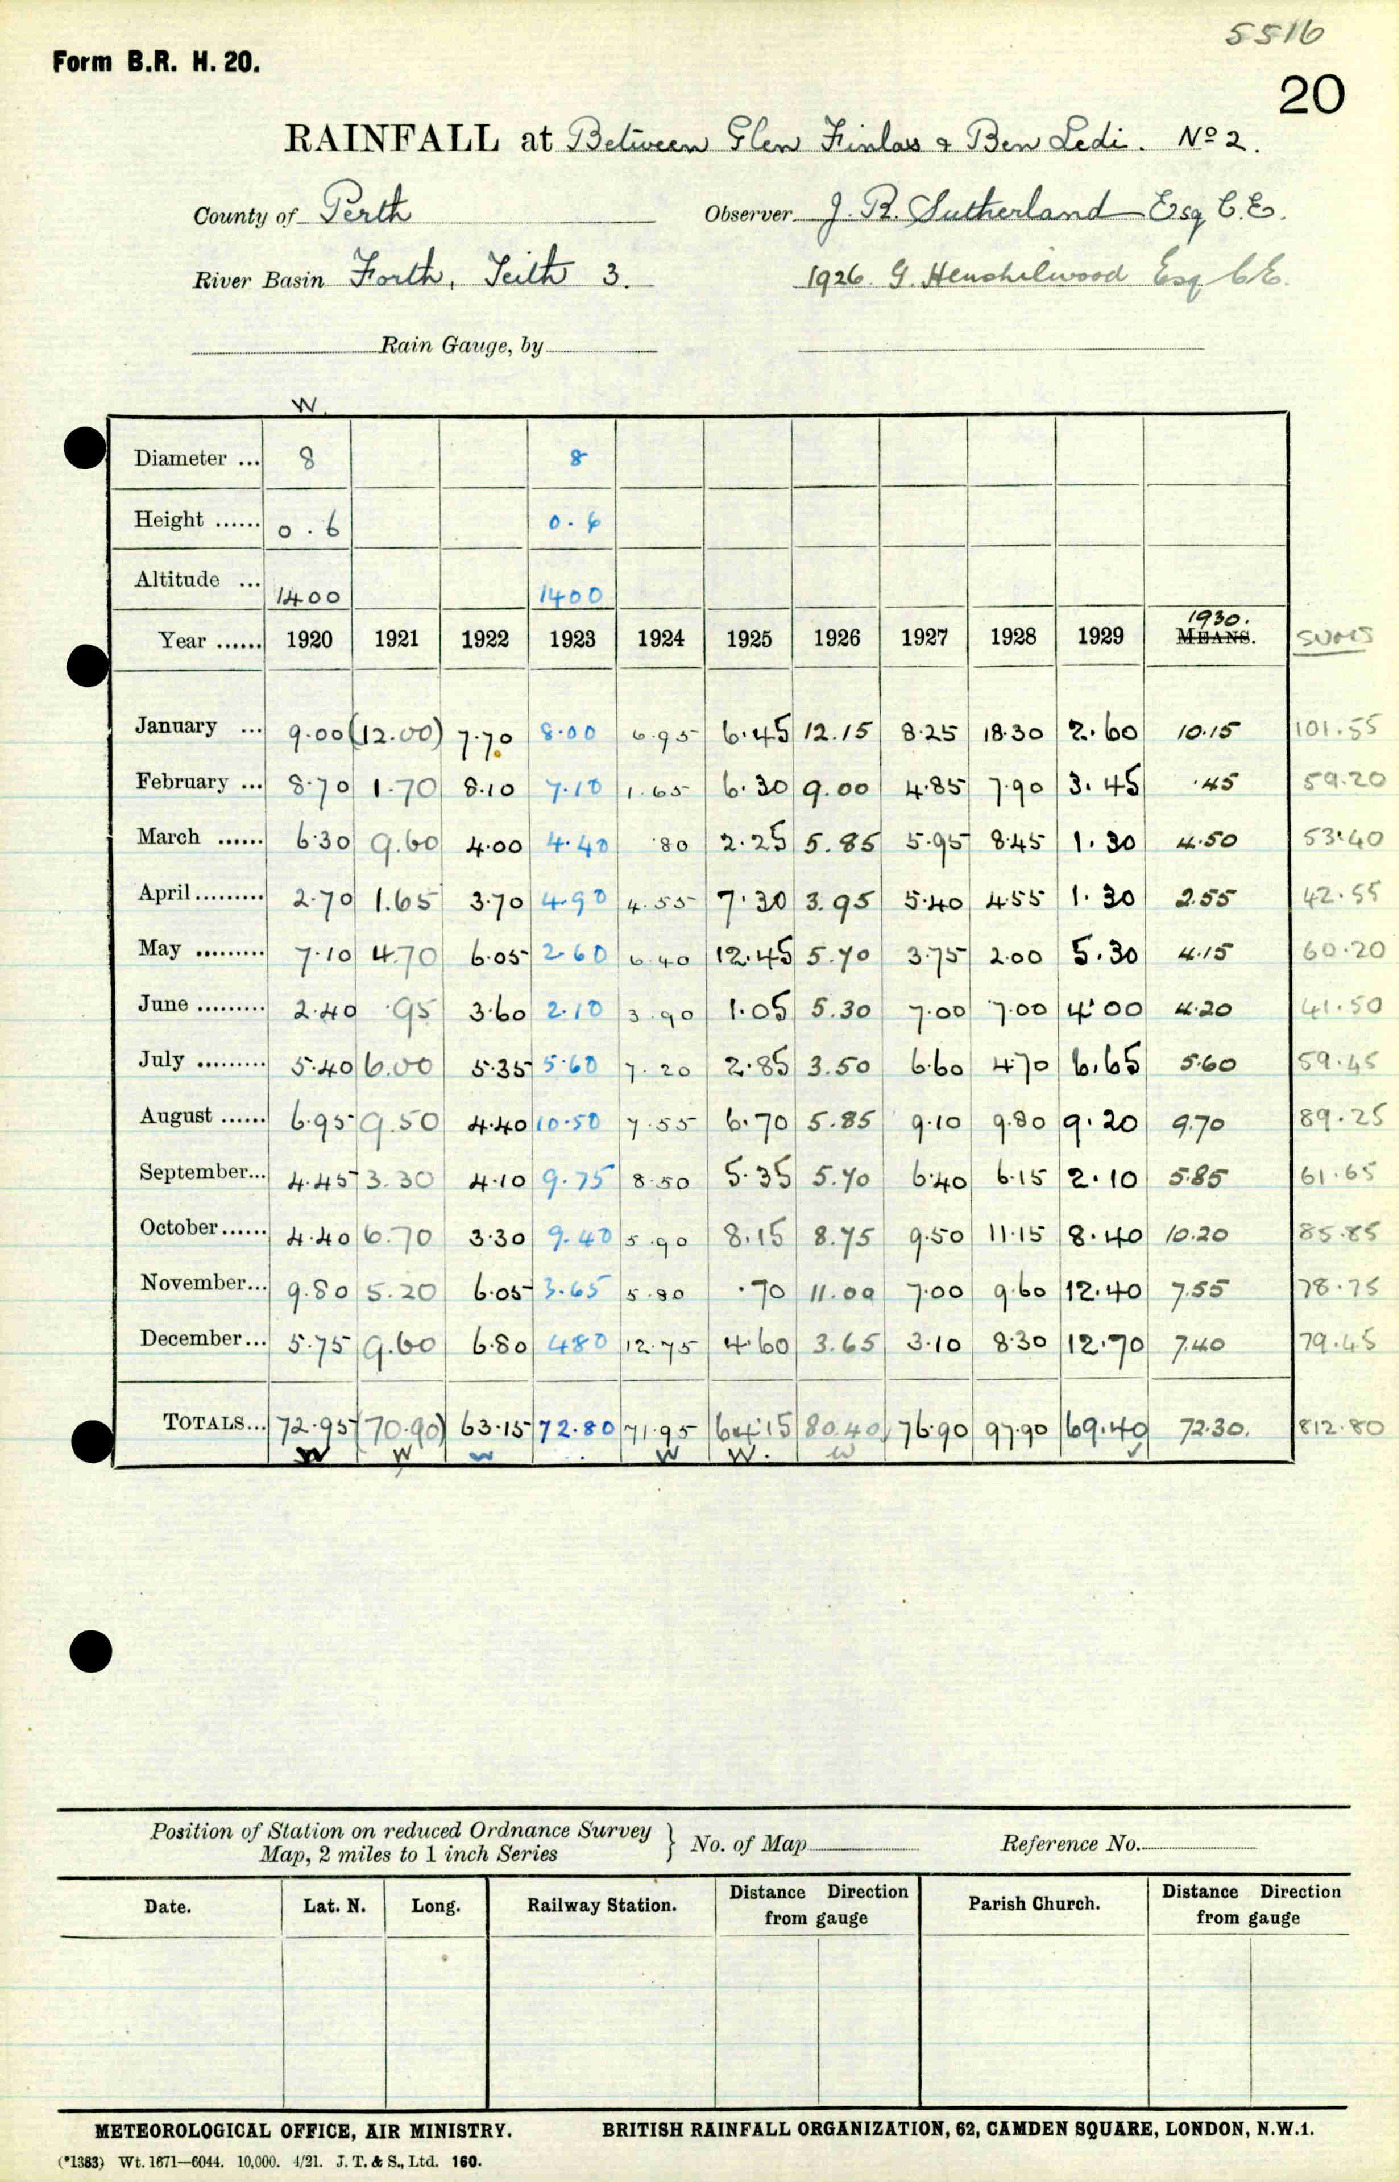 5516
Form B.R. H. 20.
20
RAINFALL at Between Glen Finlas & Ben Ledi. No 2.
County of Perth Observer J. R. Sutherland Esq C.E.
River Basin Forth, Teith 3. 1926. G. Henshilwood Esq C.E.
Rain Gauge, by
W.
Diameter ... 8 8
Height ...... 0.6 0.6
Altitude ... 1400 1400
1930.
Year ...... 1920 1921 1922 1923 1924 1925 1926 1927 1928 1929 MEANS. SUMS
January ... 9.00 (12.00) 7.70 8.00 6.95 6.45 12.15 8.25 18.30 2.60 10.15 101.55
February ... 8.70 1.70 8.10 7.10 1.65 6.30 9.00 4.85 7.90 3.45 .45 59.20
March ...... 6.30 9.60 4.00 4.40 .80 2.25 5.85 5.95 8.45 1.30 4.50 53.40
April ......... 2.70 1.65 3.70 4.90 4.55 7.30 3.95 5.40 4.55 1.30 2.55 42.55
May ......... 7.10 4.70 6.05 2.60 6.40 12.45 5.70 3.75 2.00 5.30 4.15 60.20
June ......... 2.40 .95 3.60 2.10 3.90 1.05 5.30 7.00 7.00 4.00 4.20 41.50
July ......... 5.40 6.00 5.35 5.60 7.20 2.85 3.50 6.60 4.70 6.65 5.60 59.45
August ...... 6.95 9.50 4.40 10.50 7.55 6.70 5.85 9.10 9.80 9.20 9.70 89.25
September... 4.45 3.30 4.10 9.75 8.50 5.35 5.70 6.40 6.15 2.10 5.85 61.65
October...... 4.40 6.70 3.30 9.40 5.90 8.15 8.75 9.50 11.15 8.40 10.20 85.85
November... 9.80 5.20 6.05 3.65 5.80 .70 11.00 7.00 9.60 12.40 7.55 78.75
December... 5.75 9.60 6.80 4.80 12.75 4.60 3.65 3.10 8.30 12.70 7.40 79.45
TOTALS... 72.95 (70.90) 63.15 72.80 71.95 64.15 80.40 76.90 97.90 69.40 72.30. 812.80
W W w W W. w ✓
Position of Station on reduced Ordnance Survey
Map, 2 miles to 1 inch Series } No. of Map Reference No.
Date. Lat. N. Long. Railway Station. Distance Direction from gauge Parish Church. Distance Direction from gauge
METEOROLOGICAL OFFICE, AIR MINISTRY. BRITISH RAINFALL ORGANIZATION, 62, CAMDEN SQUARE, LONDON, N.W.1.
(*1383) Wt. 1671—6044. 10,000. 4/21. J. T. & S., Ltd. 160.